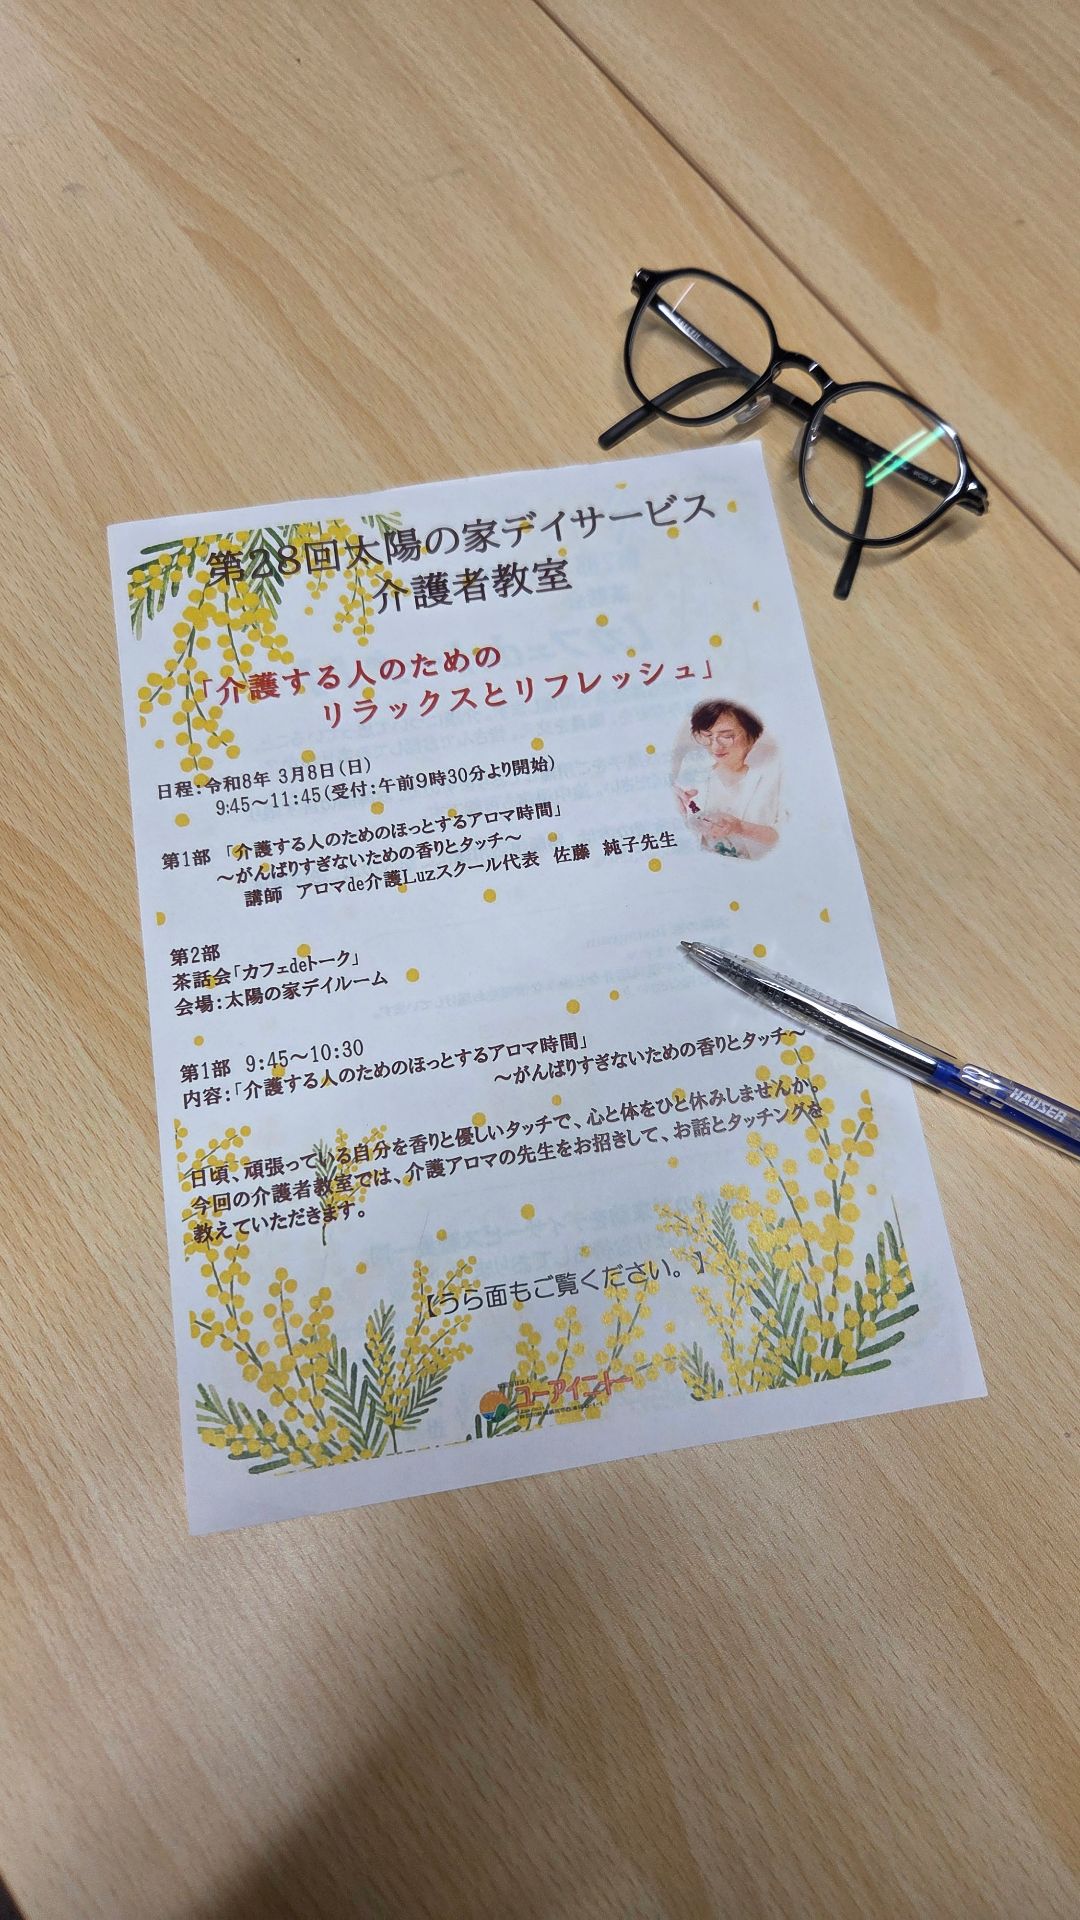 第28回太陽の家デイサービス
介護者教室
「介護する人のための
リラックスとリフレッシュ」
日程：令和8年 3月8日（日）
9:45～11:45（受付：午前9時30分より開始）
第1部 「介護する人のためのほっとするアロマ時間」
～がんばりすぎないための香りとタッチ～
講師 アロマde介護Luzスクール代表 佐藤 純子先生
第2部
茶話会「カフェdeトーク」
会場：太陽の家デイルーム
第1部 9:45～10:30
内容：「介護する人のためのほっとするアロマ時間」
～がんばりすぎないための香りとタッチ～
日頃、頑張っている自分を香りと優しいタッチで、心と体をひと休みしませんか。
今回の介護者教室では、介護アロマの先生をお招きして、お話とタッチングを
教えていただきます。
【うら面もご覧ください。】
ユーアイ二十一
HAUSER